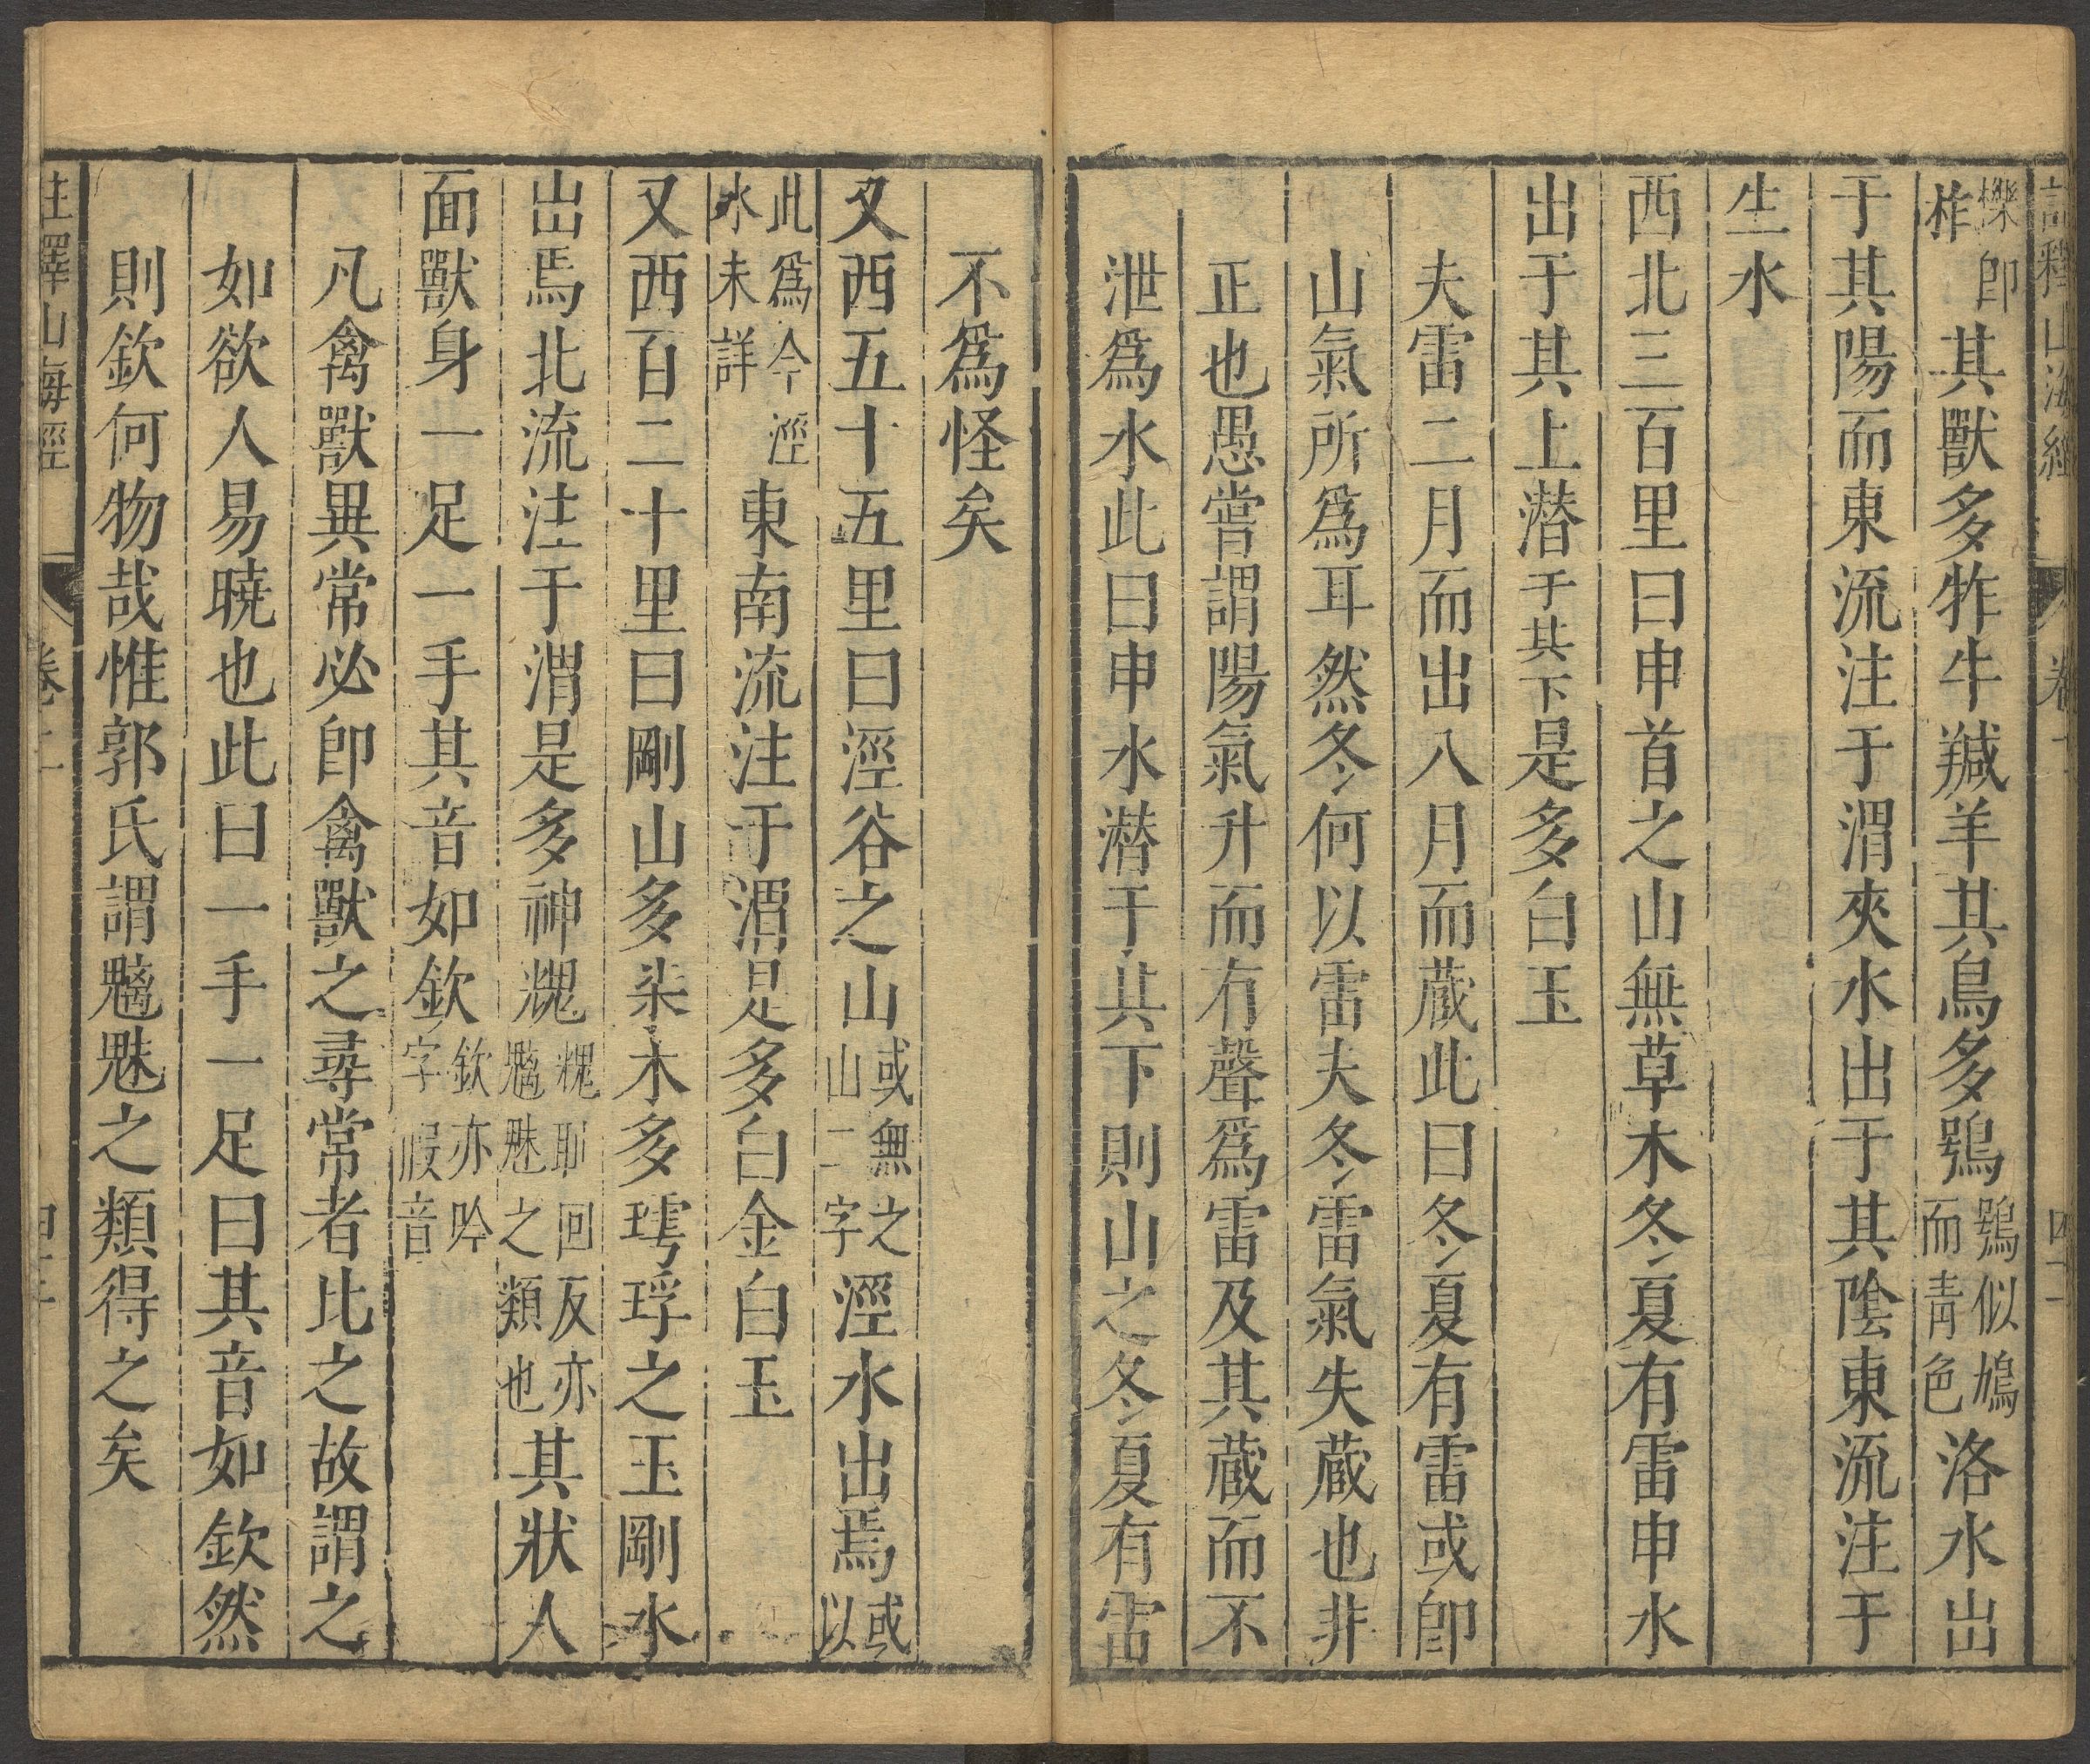 註釋山海經 卷二 四二
櫟卽柞其獸多㸲牛羬羊其鳥多鴞鴞似鳩而青色洛水出
于其陽而東流注于渭夾水出于其陰東流注于
生水
西北三百里曰申首之山無草木冬夏有雷申水
出于其上潛于其下是多白玉
夫雷二月而出八月而藏此曰冬夏有雷或卽
山氣所爲耳然冬何以雷夫冬雷氣失藏也非
正也愚嘗謂陽氣升而有聲爲雷及其藏而不
泄爲水此曰申水潛于其下則山之冬夏有雷
不爲怪矣
又西五十五里曰涇谷之山或無之山二字涇水出焉或以
此爲今涇水未詳東南流注于渭是多白金白玉
又西百二十里曰剛山多柒木多㻬琈之玉剛水
出焉北流注于渭是多神䰠䰠恥回反亦魑魅之類也其狀人
面獸身一足一手其音如欽欽亦吟字假音
凡禽獸異常必卽禽獸之尋常者比之故謂之
如欲人易曉也此曰一手一足曰其音如欽然
則欽何物哉惟郭氏謂魑魅之類得之矣
註釋山海經 卷二 四三